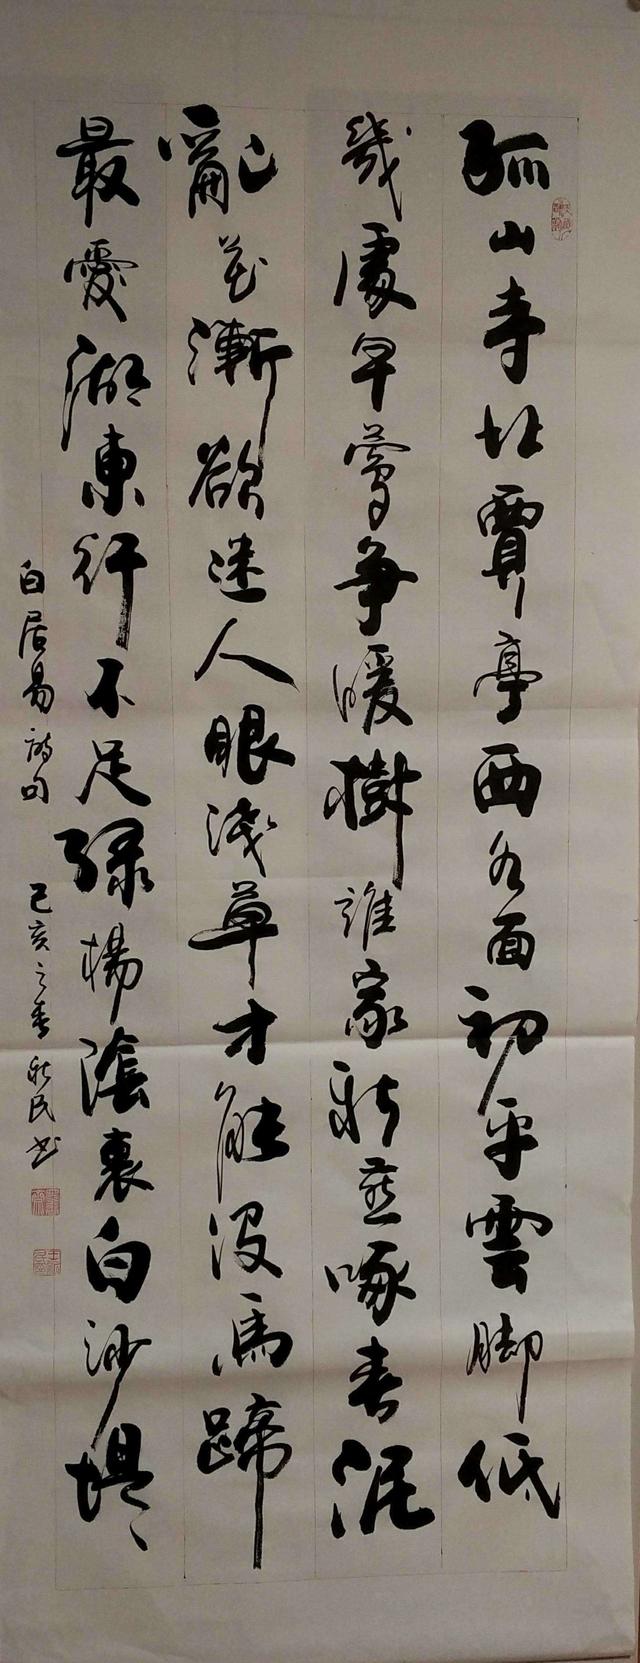 孤山寺北賈亭西水面初平雲脚低
幾處早鶯争暖樹誰家新燕啄春泥
亂花漸欲迷人眼淺草才能没馬蹄
最愛湖東行不足緑楊陰裏白沙堤
白居易詩句 己亥之春 新民书